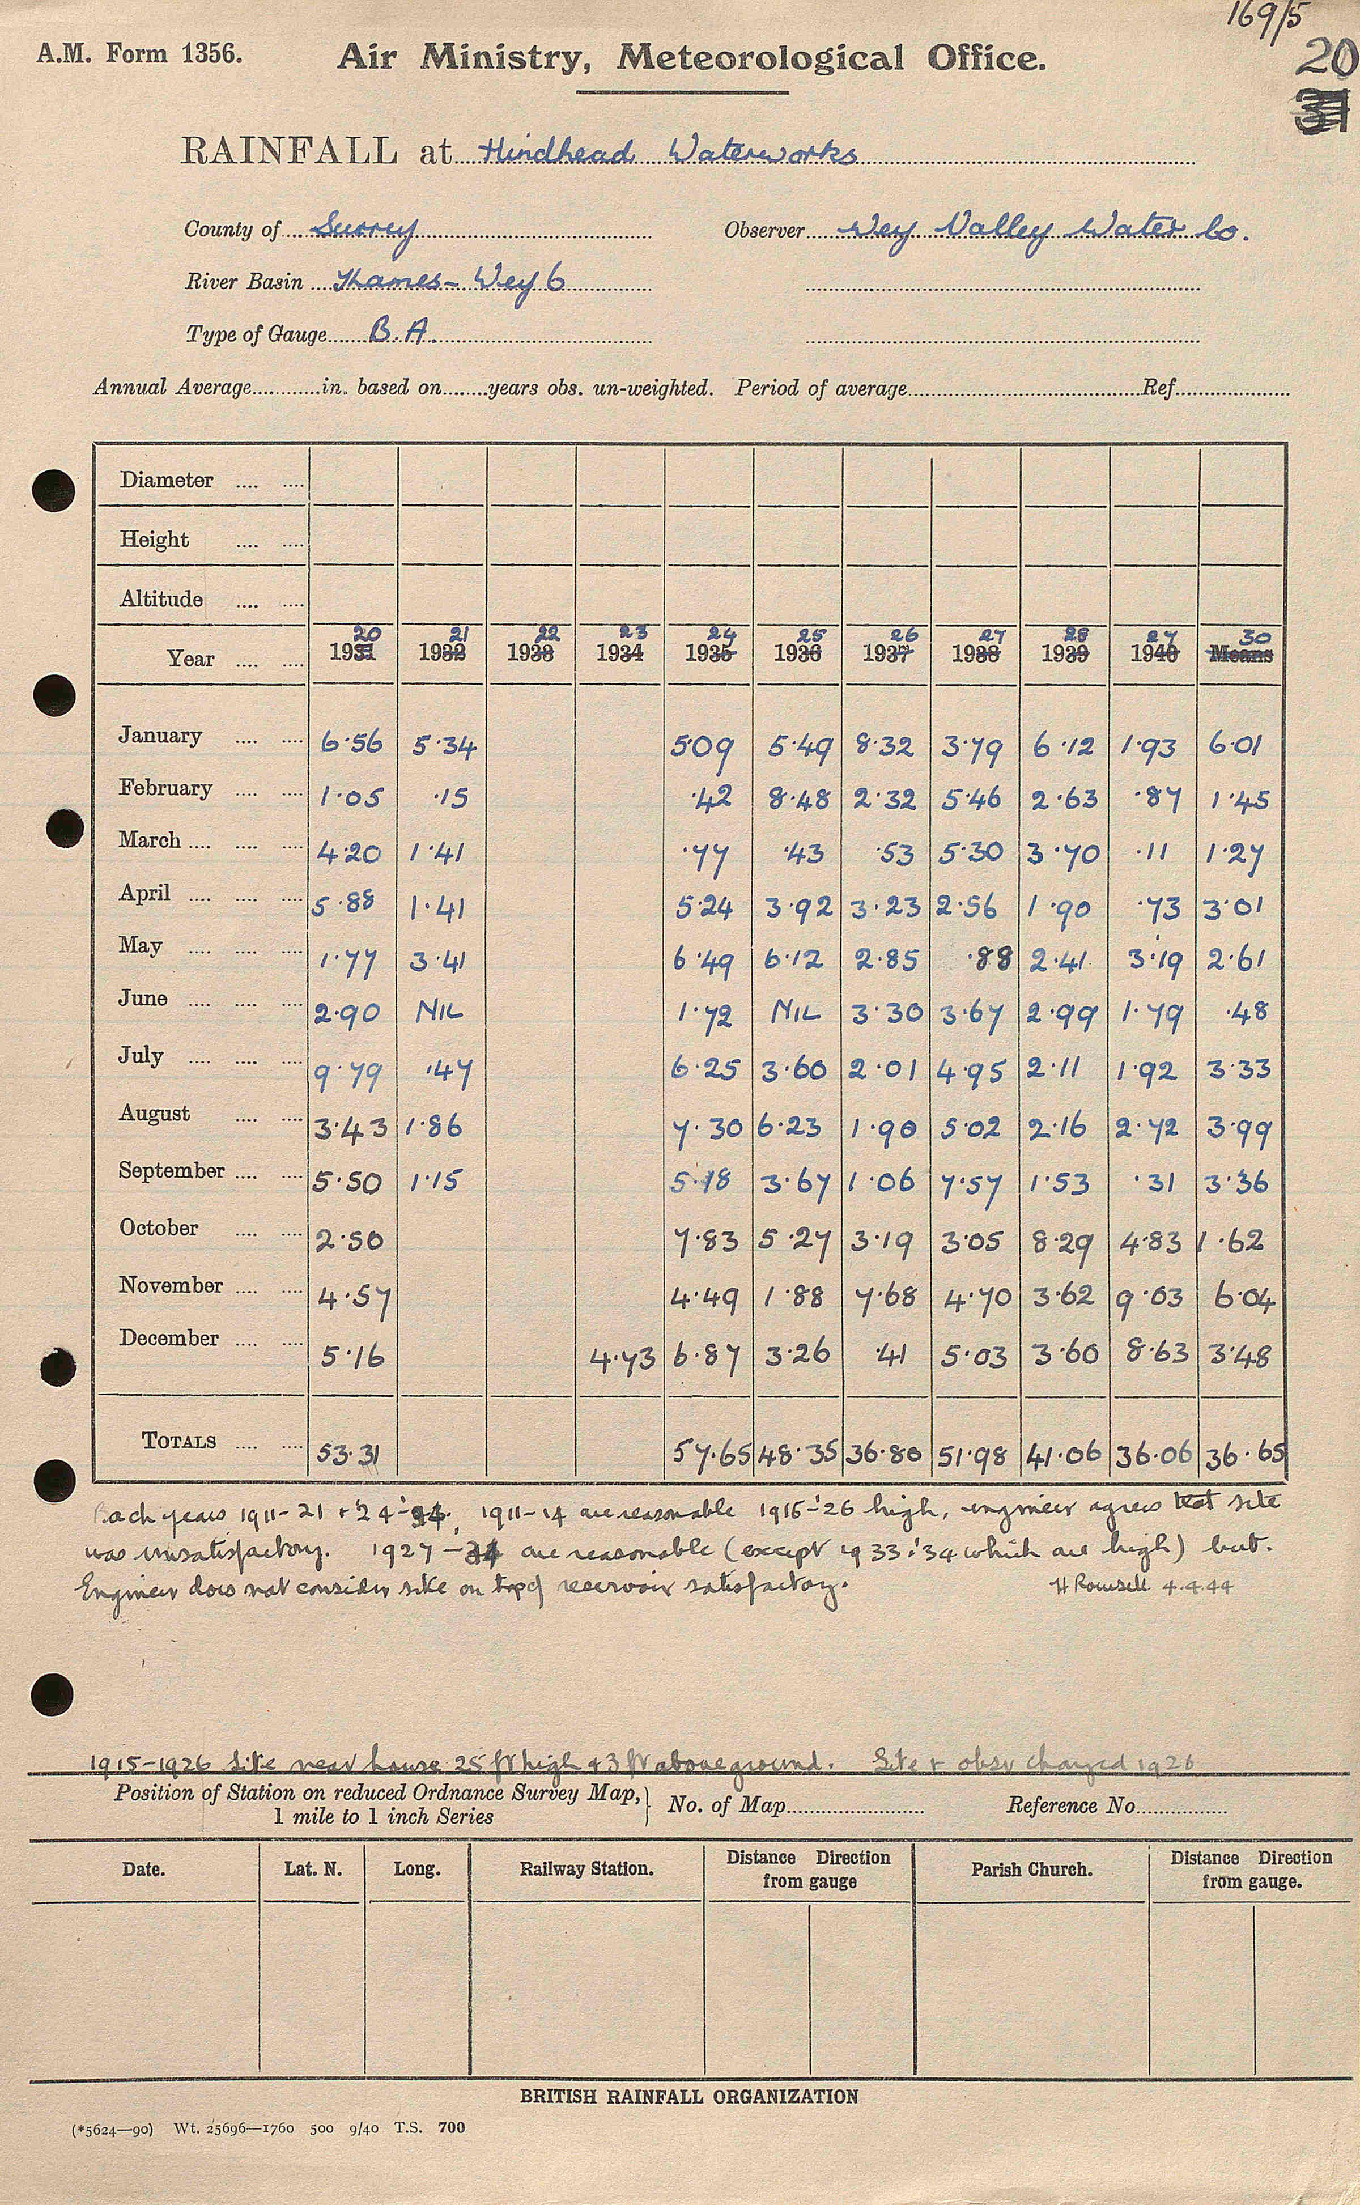 169/5
20
31
A.M. Form 1356. Air Ministry, Meteorological Office.
RAINFALL at Hindhead Waterworks
County of Surrey Observer Wey Valley Water Co.
River Basin Thames - Wey 6
Type of Gauge B.A.
Annual Average............in. based on........years obs. un-weighted. Period of average............Ref............
Diameter .... ....
Height .... ....
Altitude .... ....
20 21 22 23 24 25 26 27 28 29 30
Year .... .... 1931 1932 1933 1934 1935 1936 1937 1938 1939 1940 Means
January .... .... 6.56 5.34 509 5.49 8.32 3.79 6.12 1.93 6.01
February .... .... 1.05 .15 .42 8.48 2.32 5.46 2.63 .87 1.45
March .... .... .... 4.20 1.41 .77 .43 .53 5.30 3.70 .11 1.27
April .... .... .... 5.88 1.41 5.24 3.92 3.23 2.56 1.90 .73 3.01
May .... .... .... 1.77 3.41 6.49 6.12 2.85 .88 2.41 3.19 2.61
June .... .... .... 2.90 NIL 1.72 NIL 3.30 3.67 2.99 1.79 .48
July .... .... .... 9.79 .47 6.25 3.60 2.01 4.95 2.11 1.92 3.33
August .... .... 3.43 1.86 7.30 6.23 1.90 5.02 2.16 2.72 3.99
September .... .... 5.50 1.15 5.18 3.67 1.06 7.57 1.53 .31 3.36
October .... .... 2.50 7.83 5.27 3.19 3.05 8.29 4.83 1.62
November .... .... 4.57 4.49 1.88 7.68 4.70 3.62 9.03 6.04
December .... .... 5.16 4.73 6.87 3.26 .41 5.03 3.60 8.63 3.48
TOTALS .... .... 53.31 57.65 48.35 36.80 51.98 41.06 36.06 36.65
Each years 1911-21 + '24-34, 1911-14 are reasonable 1915-'26 high, engineer agrees that site
was unsatisfactory. 1927-34 are reasonable (except 1933+'34 which are high) but.
Engineer does not consider site on top of reservoir satisfactory. H Rowsell 4.4.44
1915-1926 Site near house 25 ft high + 3 ft above ground. Site + obsr changed 1926
Position of Station on reduced Ordnance Survey Map, } No. of Map............ Reference No............
1 mile to 1 inch Series
Date. Lat. N. Long. Railway Station. Distance Direction from gauge Parish Church. Distance Direction from gauge.
BRITISH RAINFALL ORGANIZATION
(*5624—90) Wt. 25696—1760 500 9/40 T.S. 700